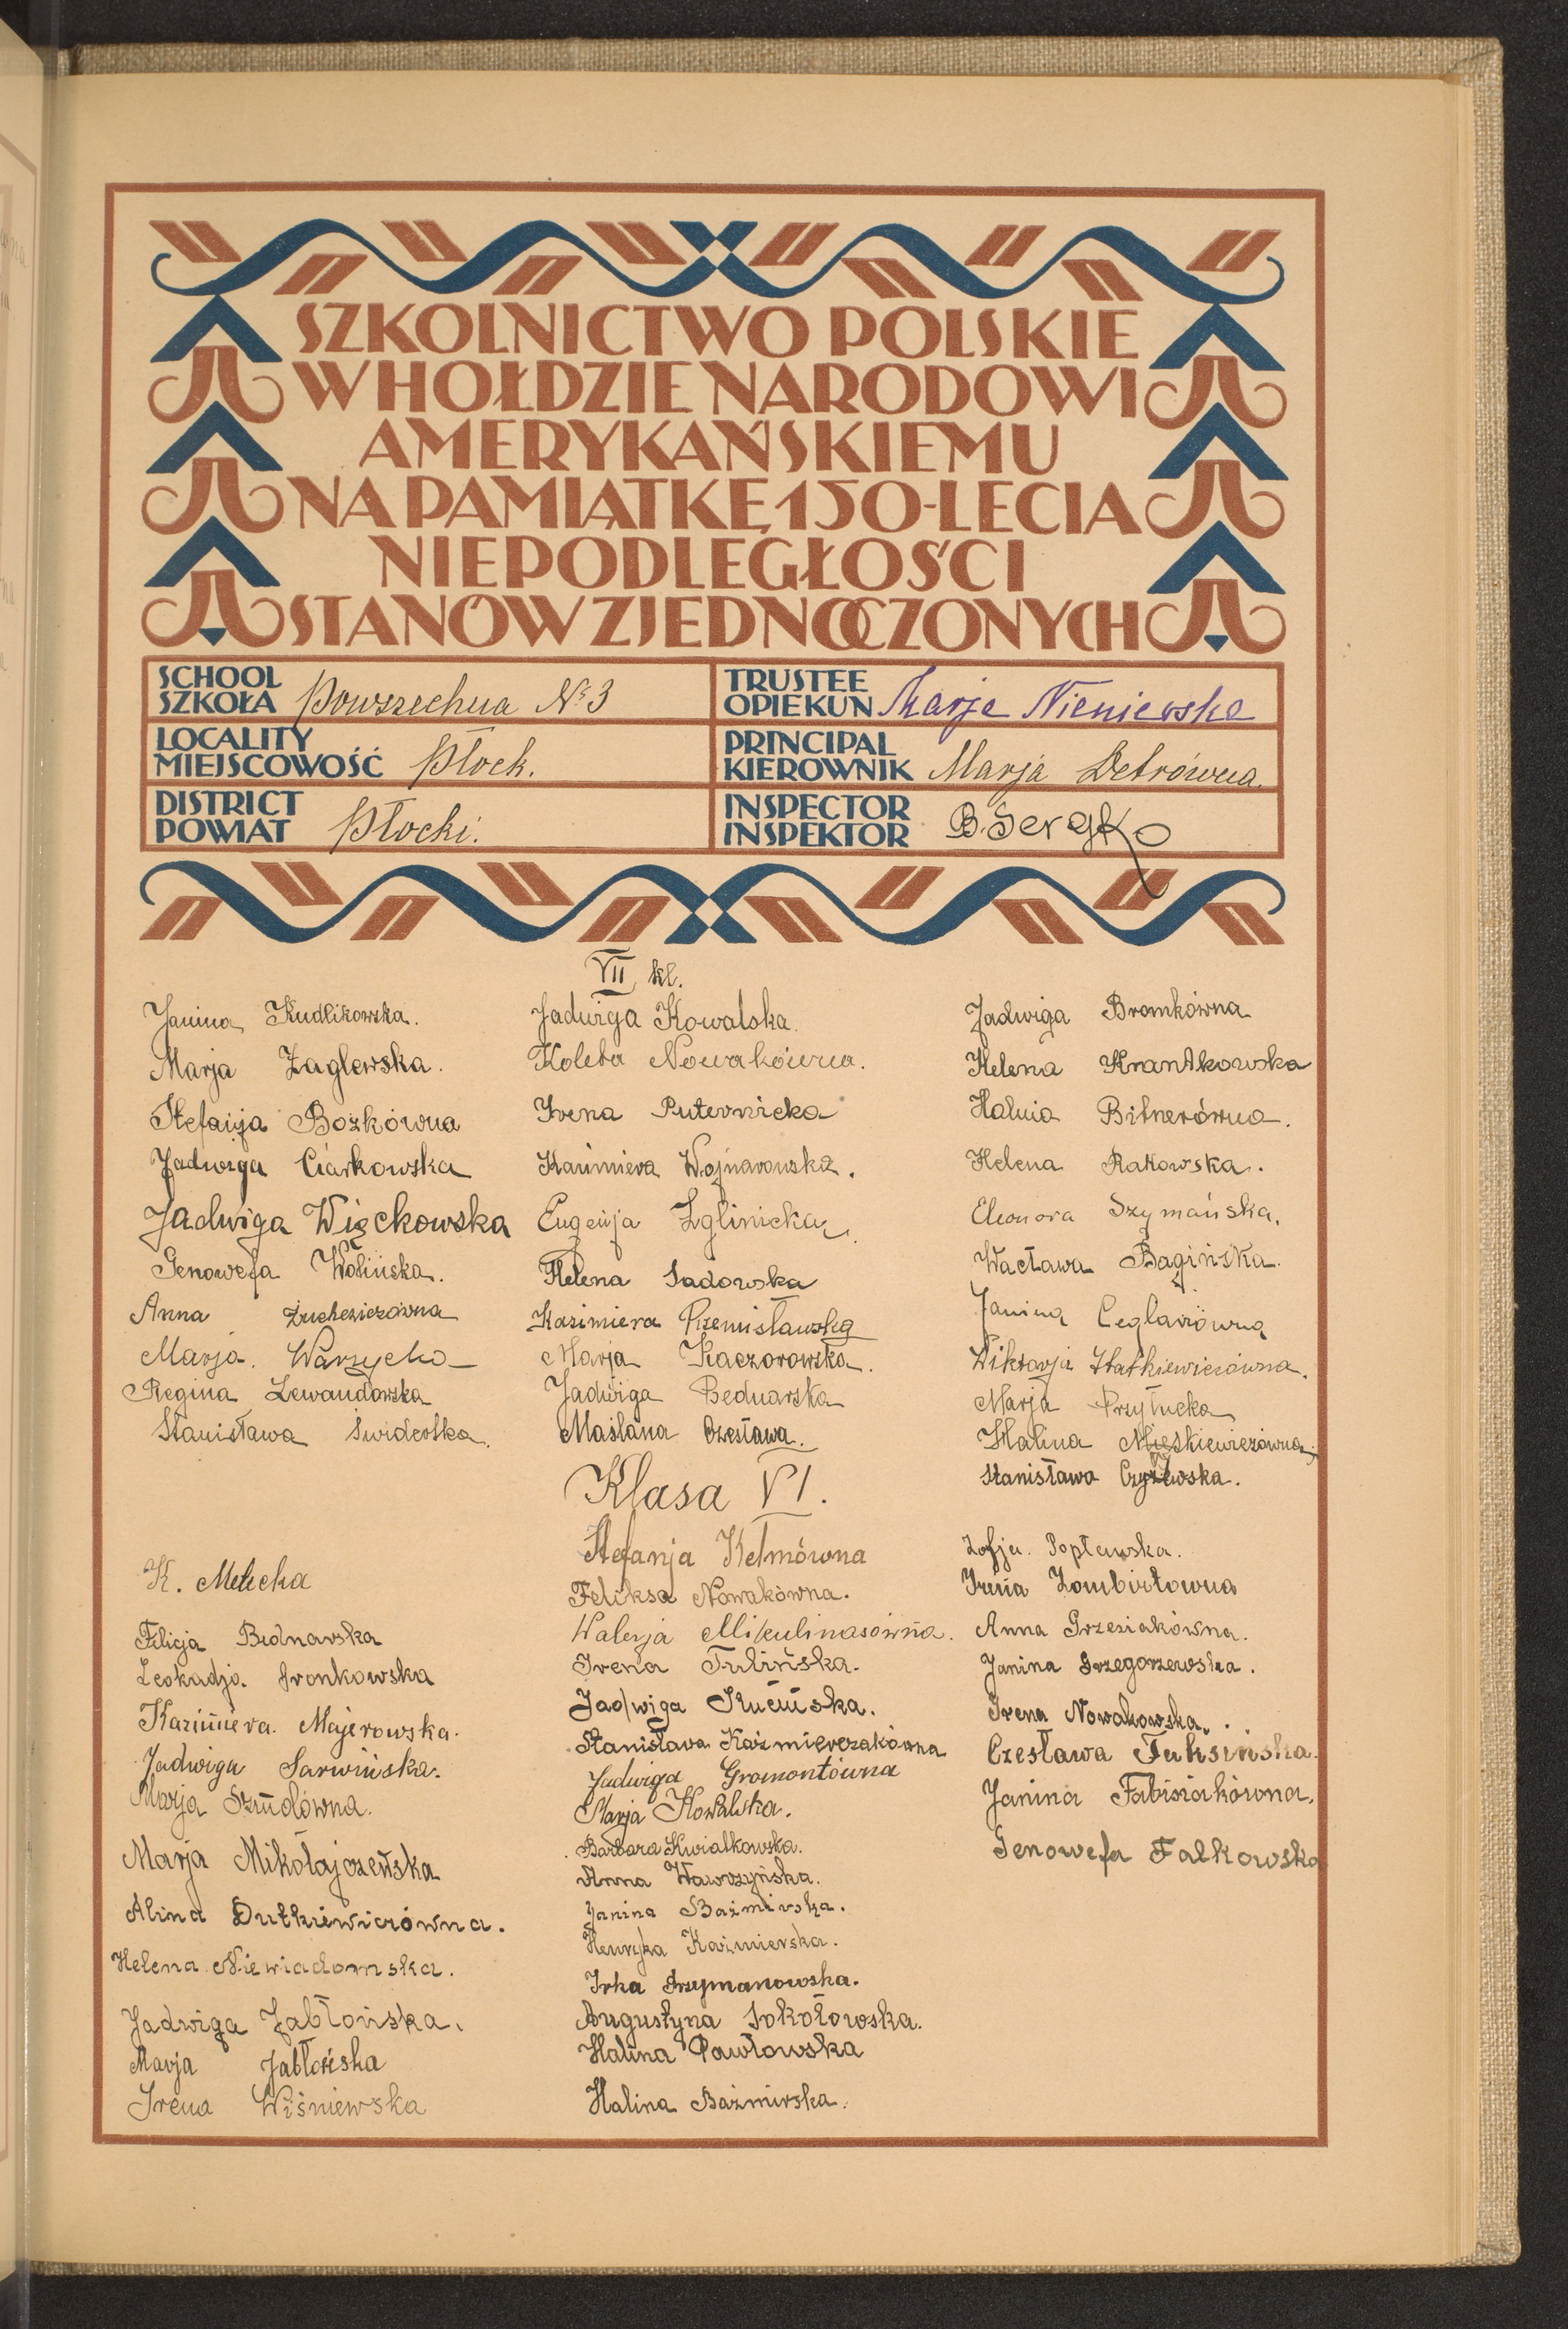 SZKOLNICTWO POLSKIE
W HOŁDZIE NARODOWI
AMERYKAŃSKIEMU
NA PAMIĄTKĘ 150-LECIA
NIEPODLEGŁOŚCI
STANÓW ZJEDNOCZONYCH
SCHOOL
SZKOŁA Powszechna № 3
TRUSTEE
OPIEKUN Marja Nieniewska
LOCALITY
MIEJSCOWOŚĆ Płock.
PRINCIPAL
KIEROWNIK Marja Detrówna.
DISTRICT
POWIAT Płocki.
INSPECTOR
INSPEKTOR B. Sergko
VII kl.
Janina Kudlikowska.
Marja Żaglewska.
Stefanja Bożkówna
Jadwiga Ciarkowska
Jadwiga Więckowska
Genowefa Wolińska.
Anna
Marja. Warzycka
Regina Lewandowska
Stanisława Świderska.
Jadwiga Kowalska.
Koleta Nowakówna.
Irena Puternicka
Kazimiera Wojnarowska.
Eugenja Zglinicka.
Helena Sadowska
Kazimiera Przemisławska
Marja Kaczorowska.
Jadwiga Bednarska
Maślana Czesława.
Jadwiga Bromkówna
Helena Krantkowska
Halina Bitnerówna.
Helena Rakowska.
Eleonora Szymańska.
Wacława Bagińska.
Janina Ceglarzówna
Wiktorja Statkiewiczówna.
Marja Przyłucka
Halina Mieszkiewiczówna.
Stanisława Czyżewska.
Klasa VI.
K. Melecka
Felicja Bednarska
Leokadja. Gronkowska
Kazimiera. Majerowska.
Jadwiga Sarwińska.
Marja Szmdlówna.
Marja Mikołajczewska
Alina Dutkiewiczówna.
Helena Niewiadomska.
Jadwiga Jabłońska.
Marja Jabłońska
Irena Wiśniewska
Stefanja Kelmówna
Feliksa Nowakówna.
Walerja Mikulinasówna.
Irena Tulińska.
Jadwiga Kucińska.
Stanisława Kaźmierczakówna
Jadwiga Gromontówna
Marja Kowalska.
Barbara Kwiatkowska.
Anna Wawrzyńska.
Janina Baźmirska.
Henryka Kaźmierska.
Irka Szymanowska.
Augustyna Sokołowska.
Halina Pawłowska
Halina Baźmirska.
Zofja. Popławska.
Irena Zombirtowna
Anna Grzesiakówna.
Janina Grzegorzewska.
Irena Nowakowska.
Czesława Fuksińska.
Janina Fabisiakówna.
Genowefa Falkowska